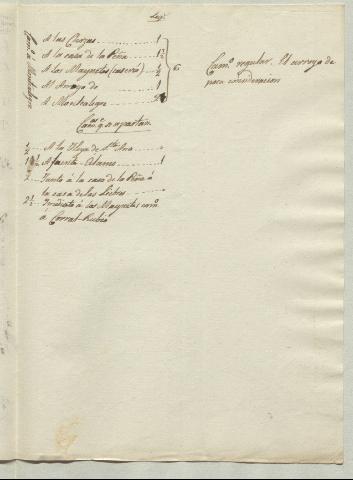 Leg.s
Cam.o á Montealegre
A las Cuevas 1
A la casa de la Peña 1 1/2
A los Maynetes (caserío) 1/2
Al Arroyo de 1
A Montealegre 2
6
Cam.o regular. El arroyo de
poca consideracion
Cam.s q. se apartan
1/2 A la Hoya de S.ta Ana
1 A fuente Alamo 1
2 Junto á la casa de la Peña á
la casa de las Liebres
2 1/2 Inmediato á los Maynetes cam.o
á Corral-Rubio